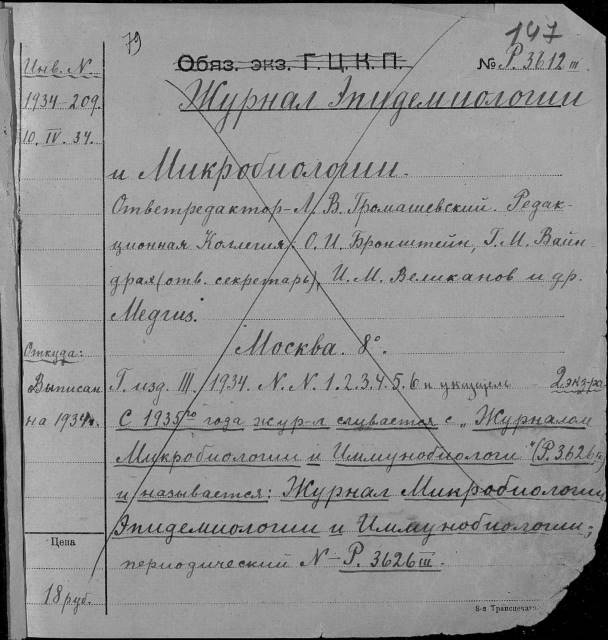 79
147
Обяз. экз. Г.Ц.К.П.
№ Р. 3612 III
Инв. N.
1934-209.
10. IV. 34.
Журнал Эпидемиологии
и Микробиологии.
Ответредактор-Л. В. Громашевский. Редак-
ционная Коллегия: О. И. Бронштейн, Г. М. Вайн-
драх (отв. секретарь), И. М. Великанов и др.
Медгиз.
Москва. 8°.
Откуда:
Выписан
на 1934г.
Г. изд. III. 1934. N. N. 1. 2. 3. 4. 5. 6 и 2 экз-ра
С 1935го года жур-л сливается с „Журналом
Микробиологии и Иммунобиологии" (Р. 3626 III)
и называется: Журнал Микробиологии,
Эпидемиологии и Иммунобиологии;
периодический N - Р. 3626 III.
Цена
18 руб.
8-я Транспечать.